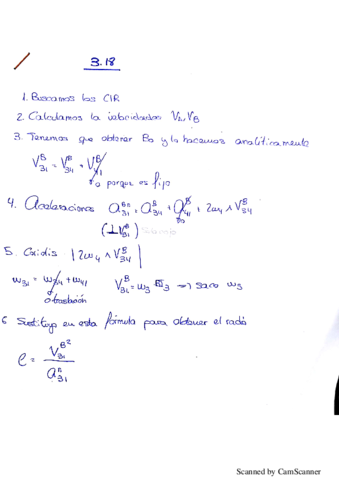 3.18
1. Buscamos los CIR
2. Calculamos la velocidades V2, VB
3. Tenemos que obtener B0 y lo hacemos analíticamente
V^B_31 = V^B_34 + V^B_41
0 porque es fijo
4. Aceleraciones a^Bn_31 = a^B_34 + a^B_41 + 2ω4 ∧ V^B_34
(⊥V^B_31)
5. Coriolis |2ω4 ∧ V^B_34|
ω31 = ω34 + ω41
0 traslación
V^B_31 = ω3 · → saco ω3
6 Sustituyo en esta fórmula para obtener el radio
ρ = V^B²_31 / a^n_31
Scanned by CamScanner